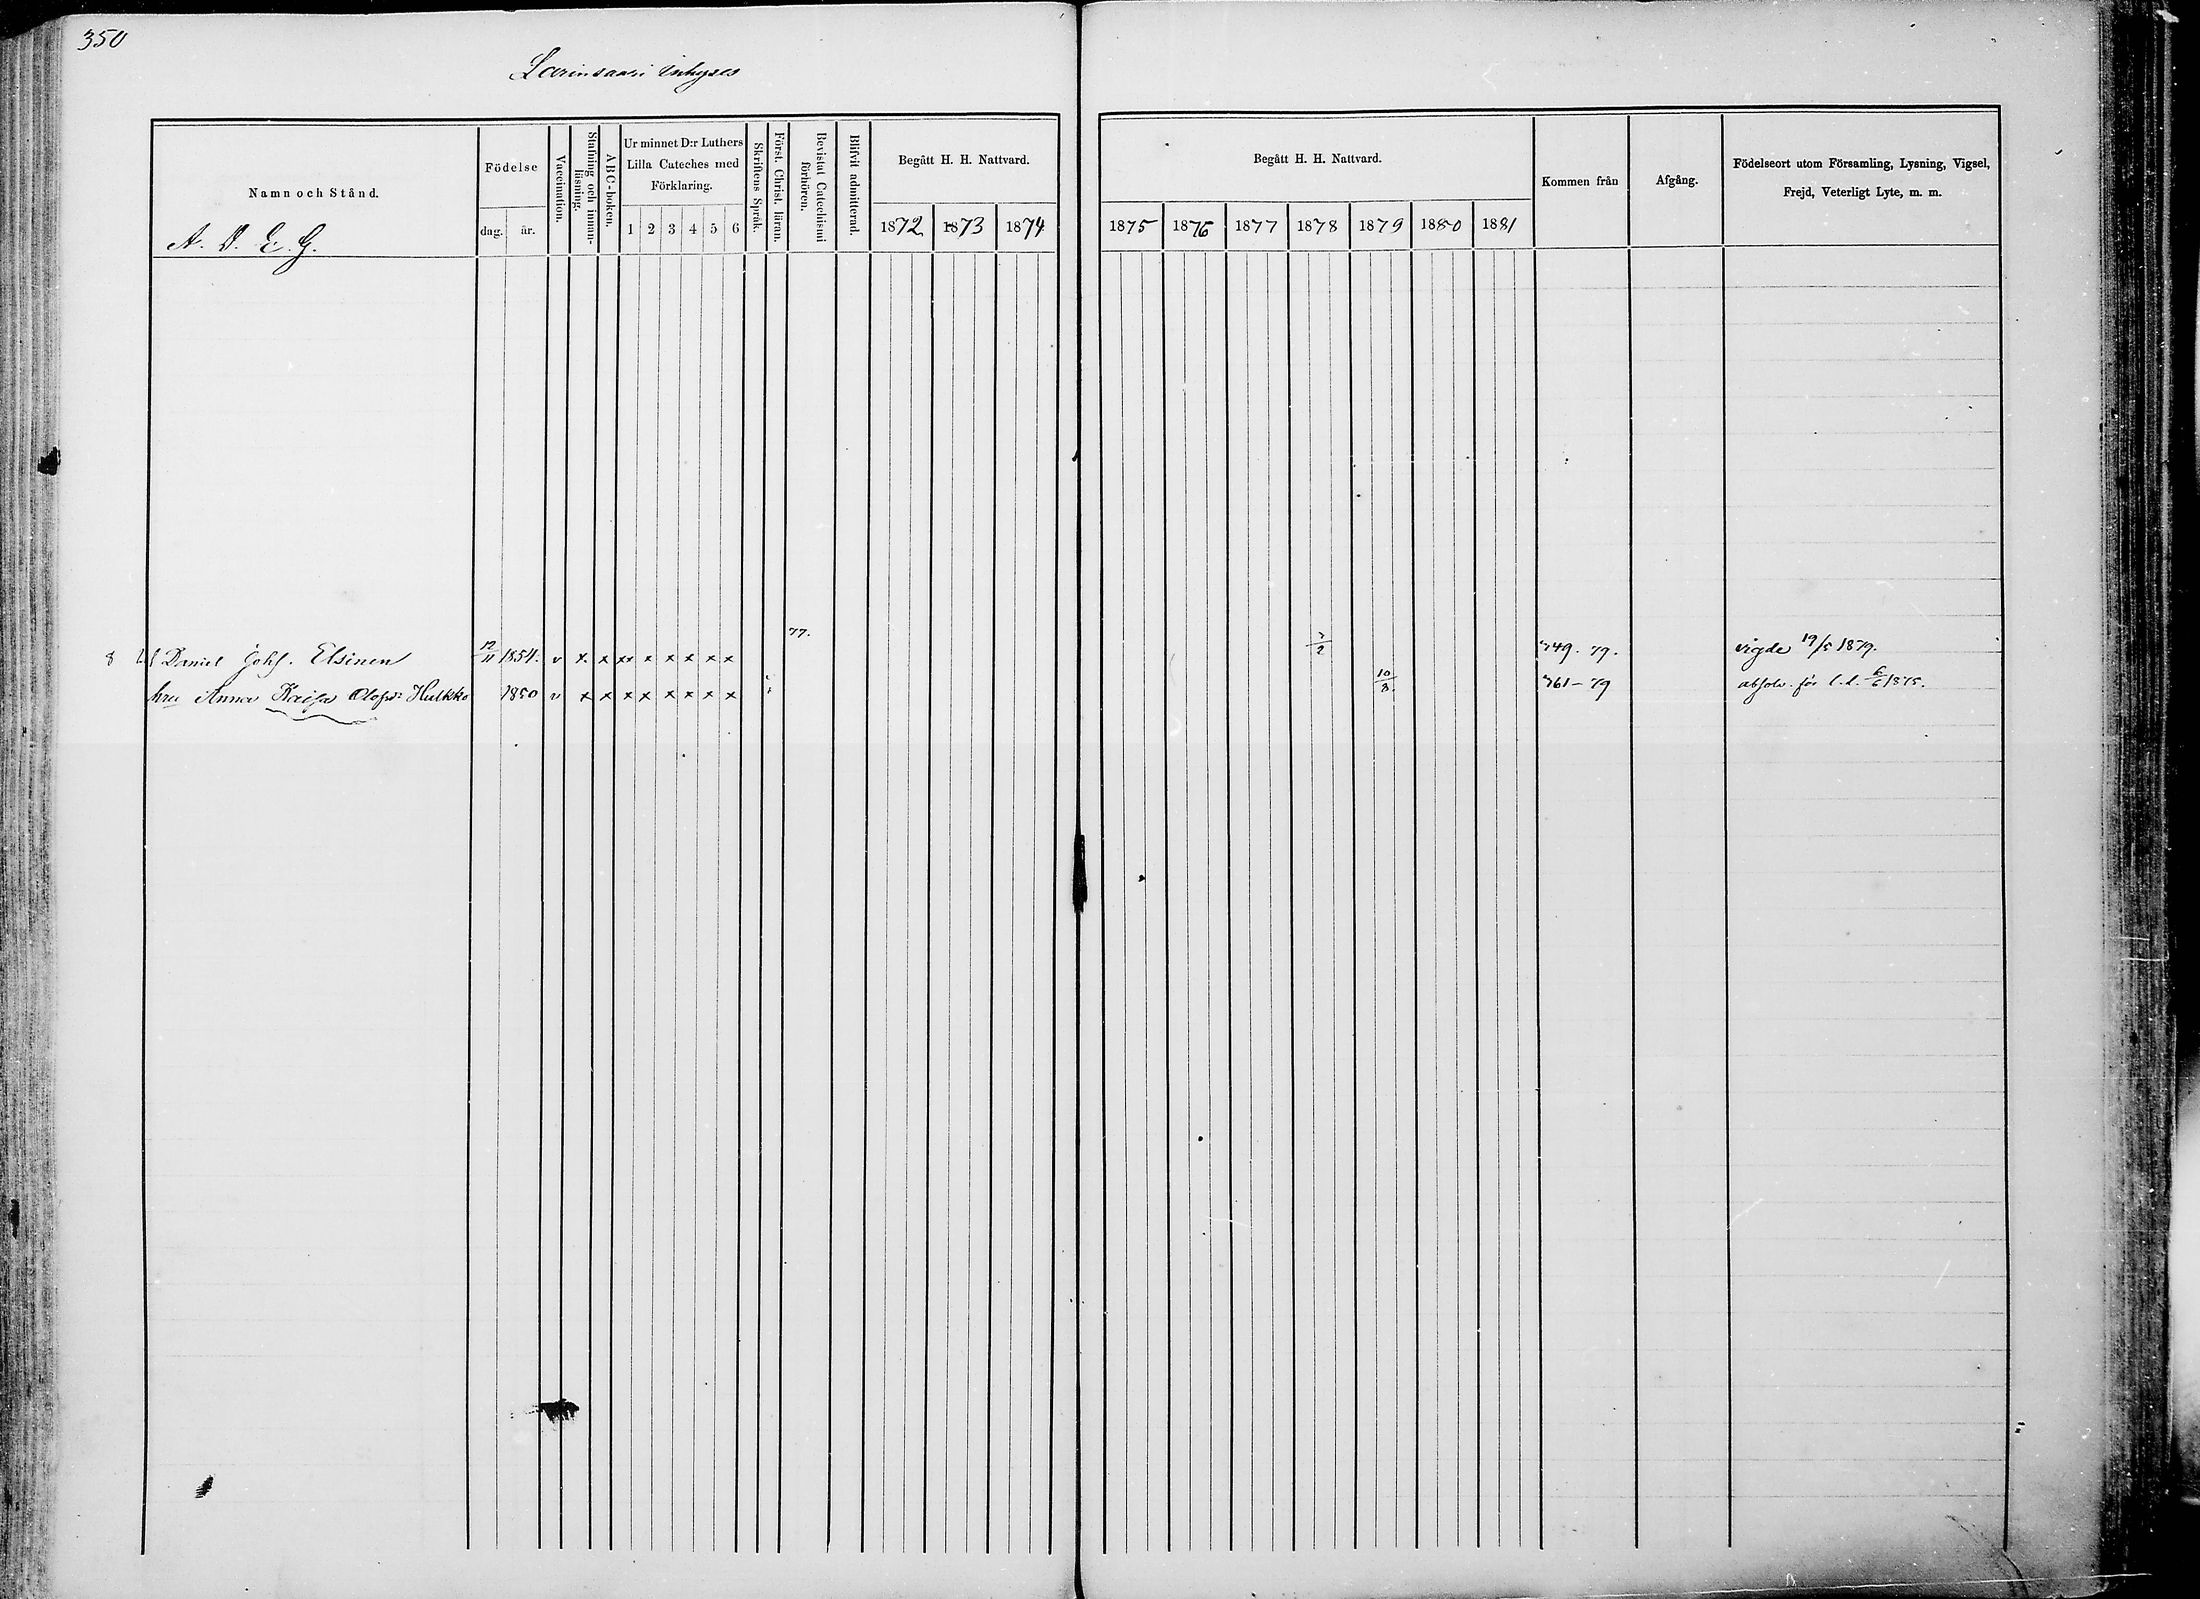 350
Larinsaari inhyses
Namn och Stånd.
A. D. E. G.
Födelse
dag.
år.
Vaccination.
Stafning och innan-
läsning.
ABC-boken.
Ur minnet D:r Luthers
Lilla Cateches med
Förklaring.
1 2 3 4 5 6
Skriftens Språk.
Först. Christ. läran.
Bevistat Catechismi
förhören.
Blifvit admitterad.
Begått H. H. Nattvard.
1872 1873 1874
Begått H. H. Nattvard.
1875 1876 1877 1878 1879 1880 1881
Kommen från
Afgång.
Födelseort utom Församling, Lysning, Vigsel,
Frejd, Veterligt Lyte, m. m.
77.
8 Daniel Johs. Elsinen 12/11 1854. v x x x x x x x x x 7/2 349. 79. vigde 19/5 1879.
hru Anna Kaisa Olofsd: Hulkko 1850 v x x x x x x x x 10/8 361-79 absolv. för l. l. 6/6 1875.